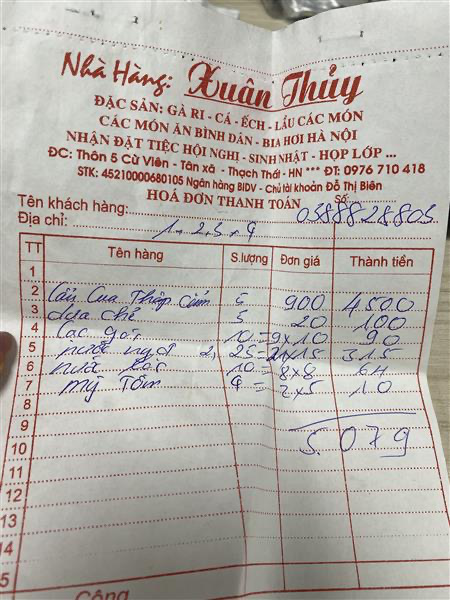 Nhà Hàng: Xuân Thủy
ĐẶC SẢN: GÀ RI - CÁ - ẾCH - LẨU CÁC MÓN
CÁC MÓN ĂN BÌNH DÂN - BIA HƠI HÀ NỘI
NHẬN ĐẶT TIỆC HỘI NGHỊ - SINH NHẬT - HỌP LỚP ...
ĐC: Thôn 5 Cừ Viên - Tân xã - Thạch Thất - HN *** ĐT: 0976 710 418
STK: 45210000680105 Ngân hàng BIDV - Chủ tài khoản Đỗ Thị Biên
HOÁ ĐƠN THANH TOÁN Số:
Tên khách hàng: 0388828803
Địa chỉ: 1 + 2 + 3 + 4
TT Tên hàng S.lượng Đơn giá Thành tiền
1
2 Lẩu Cua Thập Cẩm 5 900 4500
3 dưa chế 5 20 100
4 Lạc 10 = 9 x 10 90
5 nước ngọt 25 = 21 x 15 315
6 nước 10 = 8 x 8 64
7 mỳ Tôm 4 = 2 x 5 10
8
9 5.079
10
11
12
13
14
5
Cộng